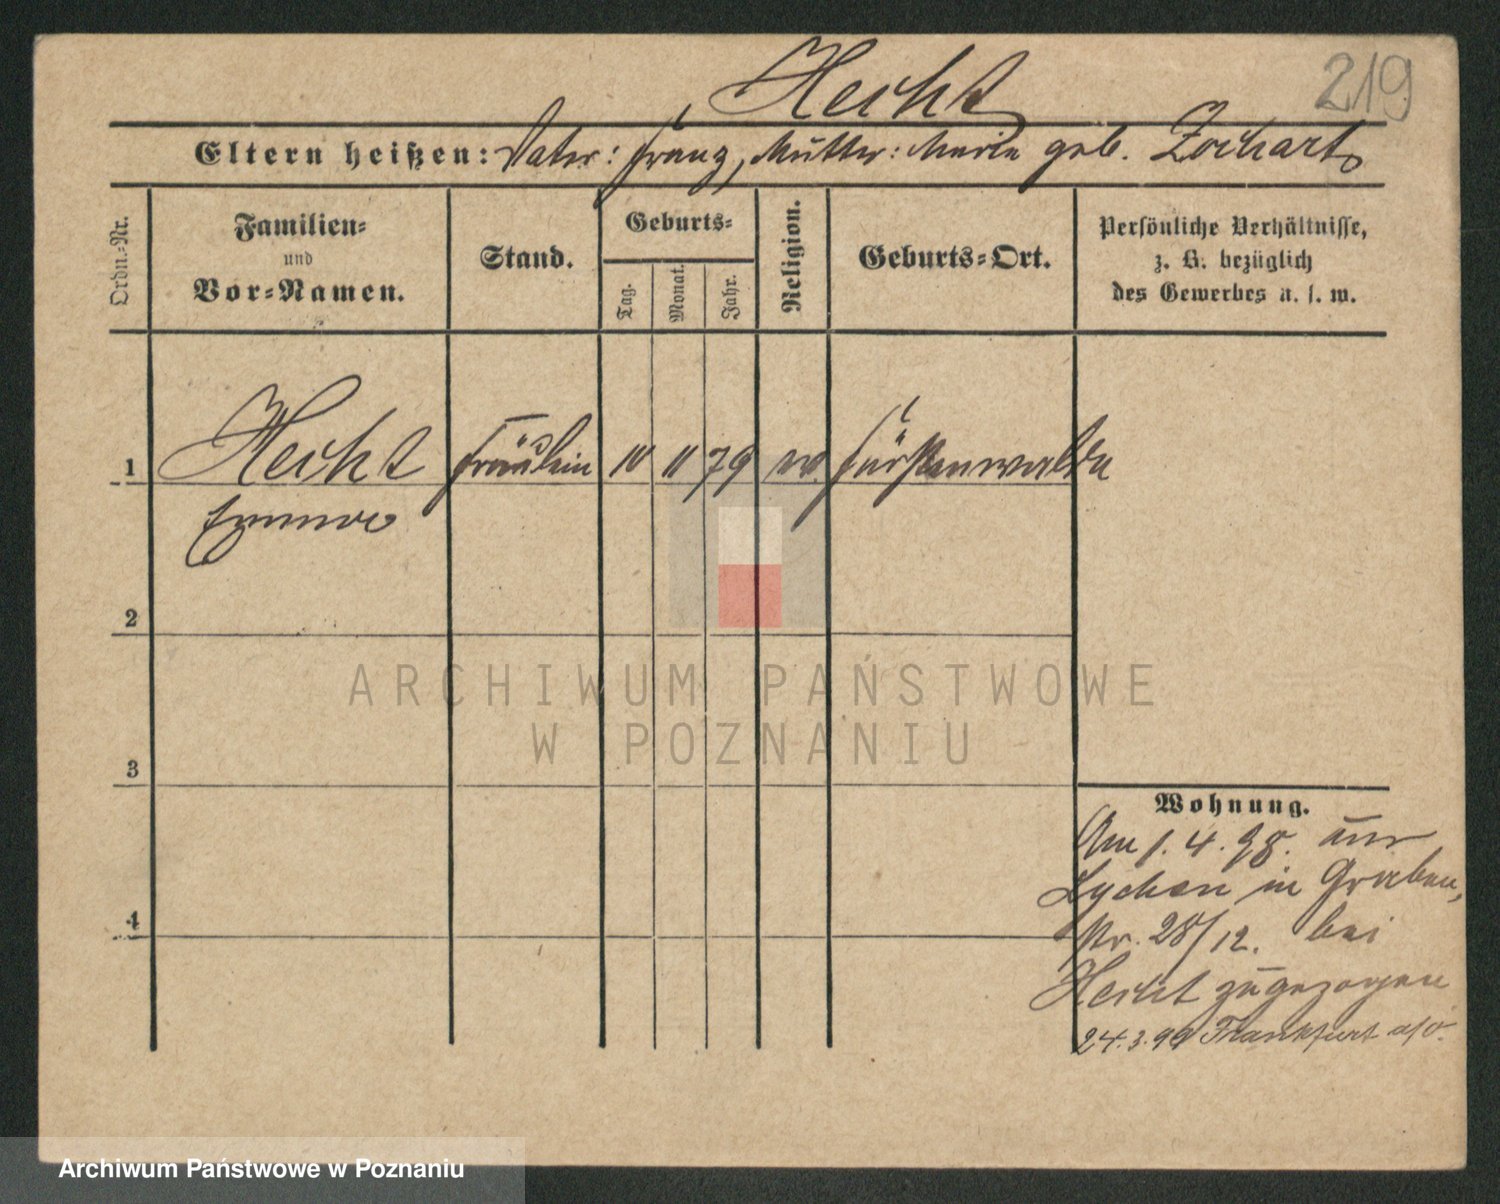 219
Hecht
Eltern heißen: Vater: Franz, Mutter: Marie geb.
Ordn.-Nr.
Familien-
und
Vor-Namen.
Stand.
Geburts-
Tag.
Monat.
Jahr.
Religion.
Geburts-Ort.
Persönliche Verhältnisse,
z. B. bezüglich
des Gewerbes u. s. w.
1 Hecht Fräulein 10 11 79 ev. Fürstenwalde
2
3
4
ARCHIWUM PAŃSTWOWE
W POZNANIU
Wohnung.
Am 1. 4. 98. aus
Lychen in Graben,
Nr. 28/12. bei
Hecht zugezogen
24.3.99 Frankfurt a/O.
Archiwum Państwowe w Poznaniu